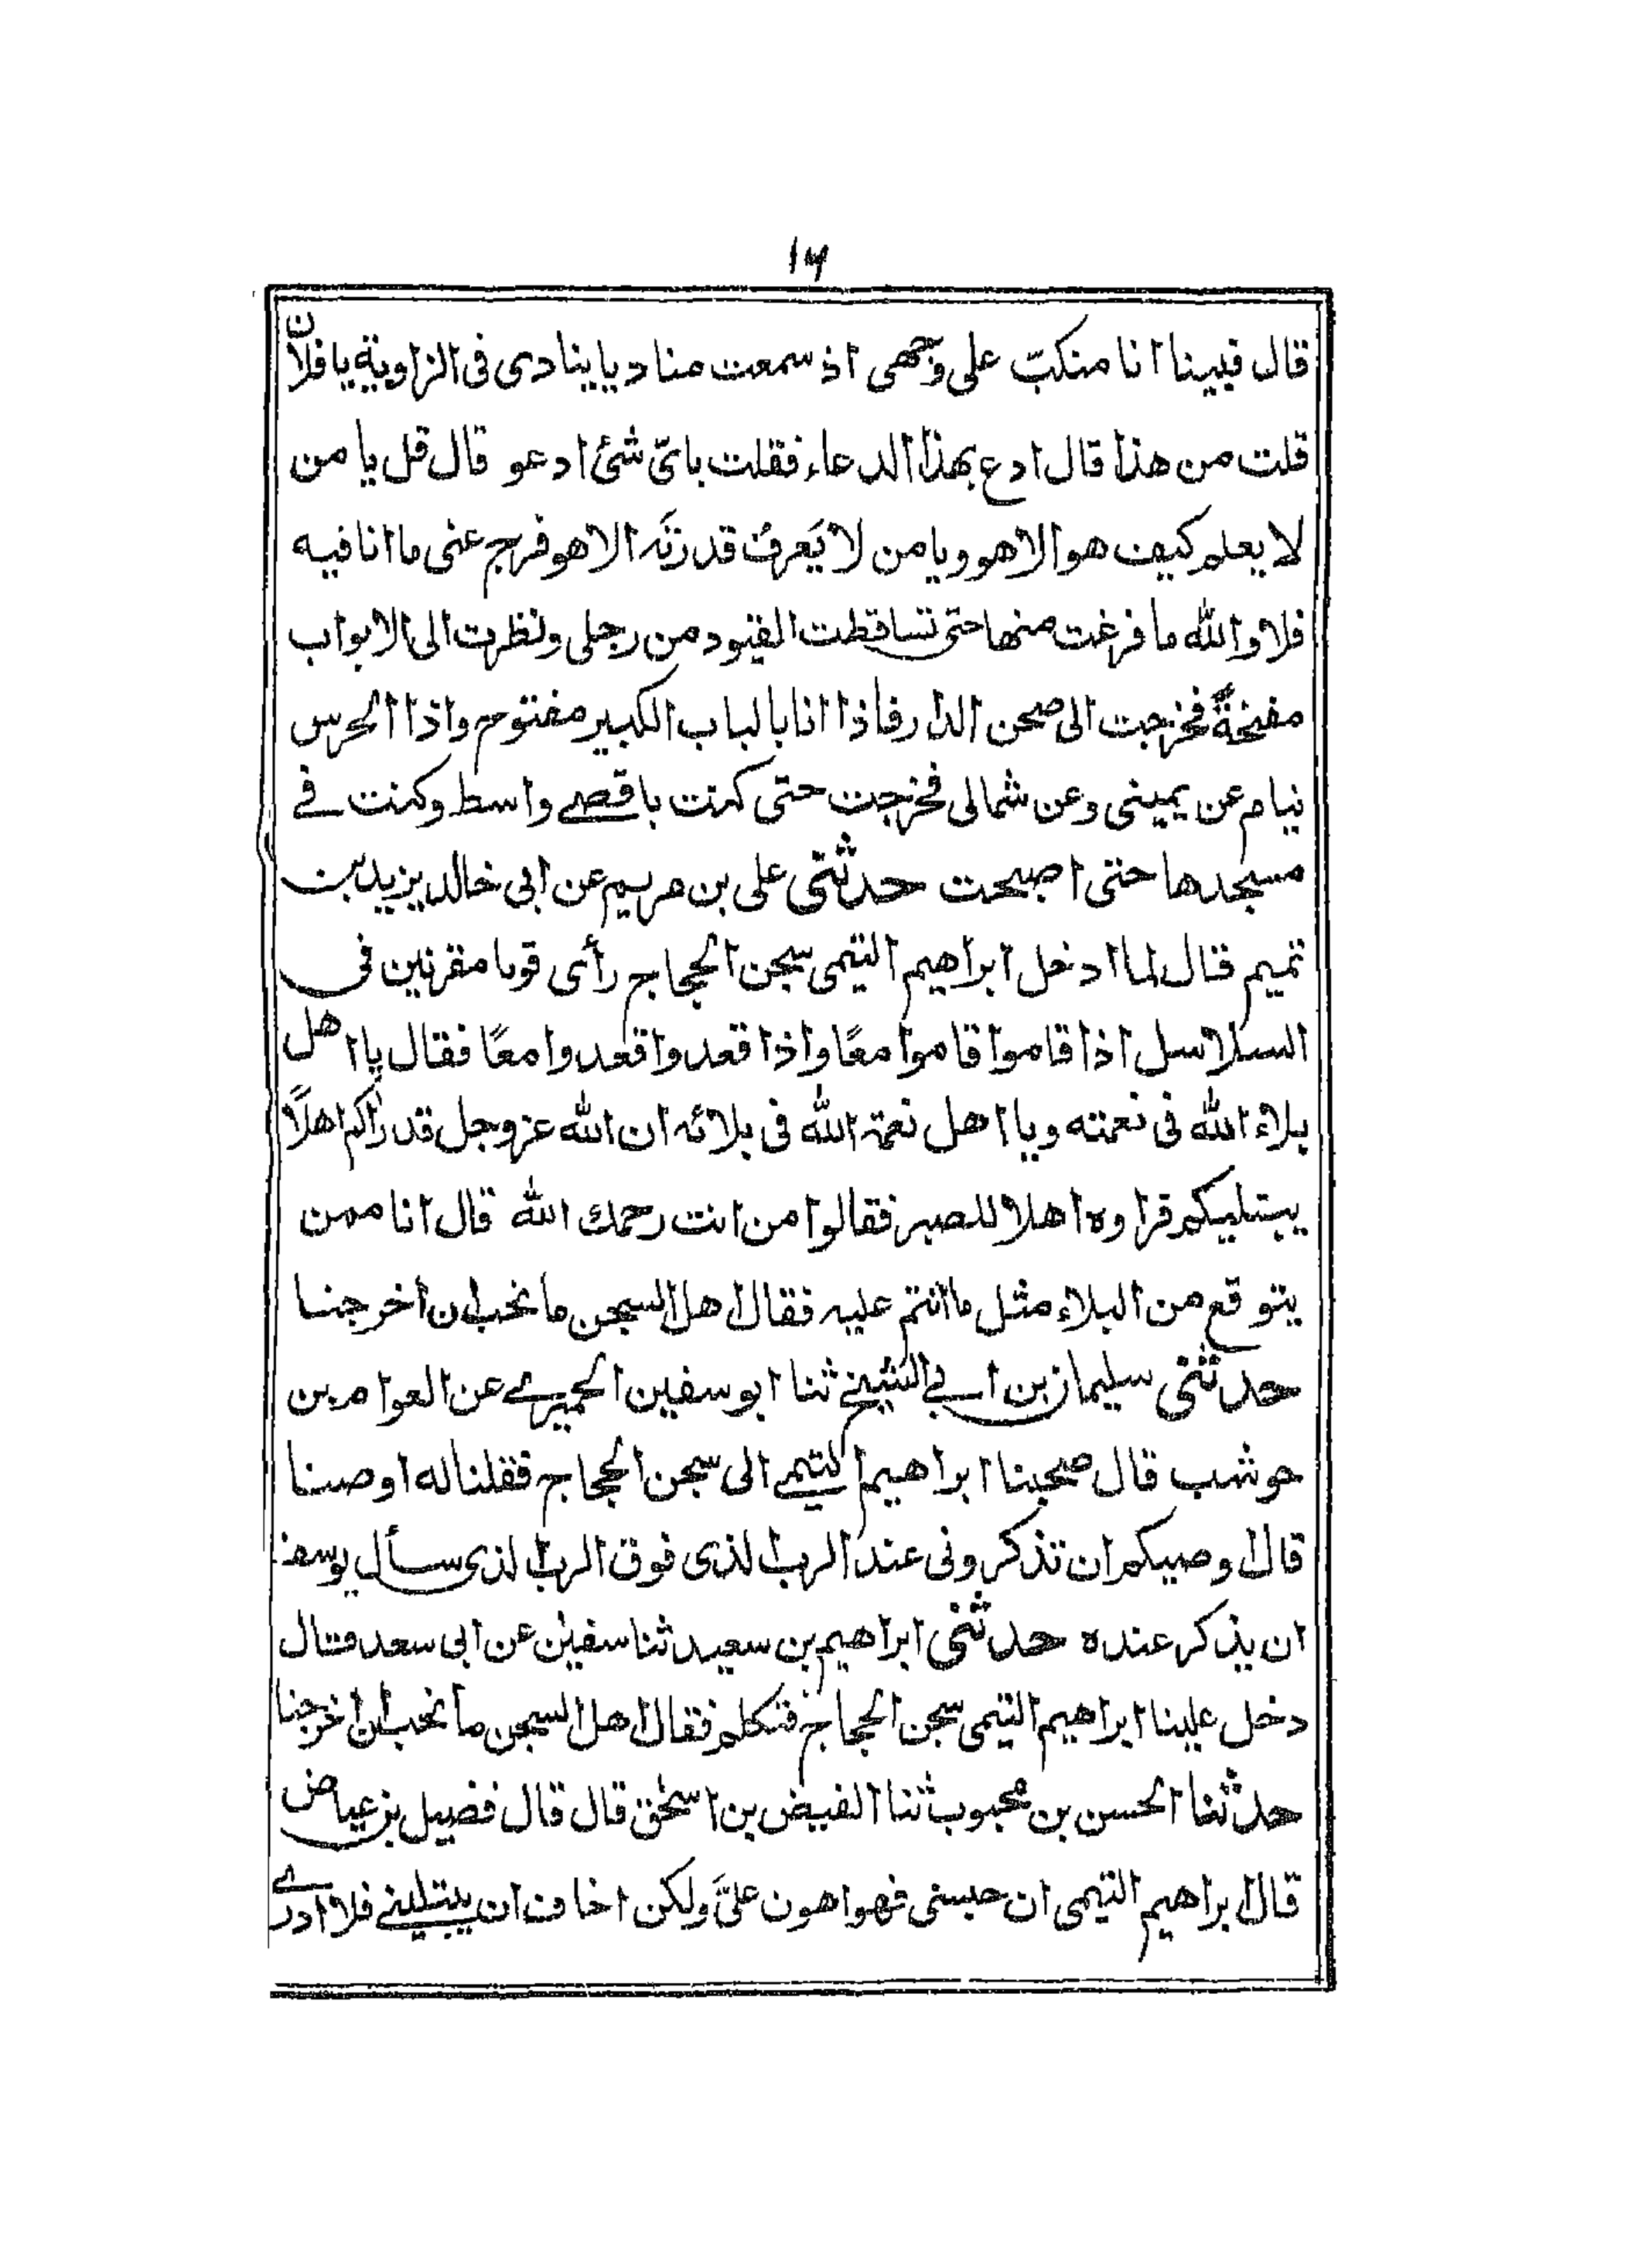 ١٦
قال فبينا انا منكبّ على وجهى اذ سمعت مناديا ينادى فى الزاوية يا فلانّ
قلت من هذا قال ادع بهذا الدعاء فقلت باىّ شئ ادعو قال قل يا من
لا يعلم كيف هو الا هو ويا من لا يَعرفُ قدرتَه الا هو فرج عنى ما انا فيه
فلا والله ما فرغت منها حتى تساقطت القيود من رجلى ونظرت الى الابواب
مفتحةً فخرجت الى صحن الدار فاذا انا بالباب الكبير مفتوح واذا الحرس
نيام عن يمينى وعن شمالى فخرجت حتى كنت باقصے واسط وكنت فے
مسجدها حتى اصبحت حدثنى على بن مريم عن ابى خالد يزيد بن
تميم قال لما ادخل ابراهيم التيمى سجن الحجاج رأى قوما مقرنين فى
السلاسل اذا قاموا قاموا معًا واذا قعدوا قعدوا معًا فقال يا اهل
بلاء الله فى نعمته ويا اهل نعمة الله فى بلائه ان الله عزوجل قد رآكم اهلًا
يبتليكم فراوه اهلا للصبر فقالوا من انت رحمك الله قال انا ممن
يتوقع من البلاء مثل ما انتم عليه فقال اهل السجن ما نحب ان أخرجنا
حدثنى سليمان بن ابے الشيخ ثنا ابو سفين الحميرے عن العوام بن
حوشب قال صحبنا ابراهيم التيمے الى سجن الحجاج فقلنا له اوصنا
قال اوصيكم ان تذكرونى عند الرب الذى فوق الرب الذى سأل يوسف
ان يذكر عنده حدثنى ابراهيم بن سعيد ثنا سفين عن ابى سعد قال
دخل علينا ابراهيم التيمى سجن الحجاج فتكلم فقال اهل السجن ما نحب ان اخرجنا
حدثنا الحسن بن محبوب ثنا الفيض بن اسحق قال قال فضيل بن عياض
قال ابراهيم التيمى ان حبسنى فهو اهون علىَّ ولكن اخاف ان يبتلينے فلا ادرے